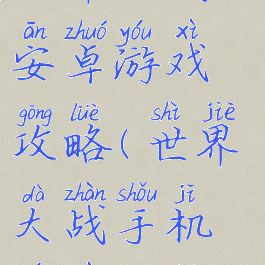 ān zhuó yóu xì
安卓游戏
gōng lüè shì jiè
攻略(世界
dà zhàn shǒu jī
大战手机